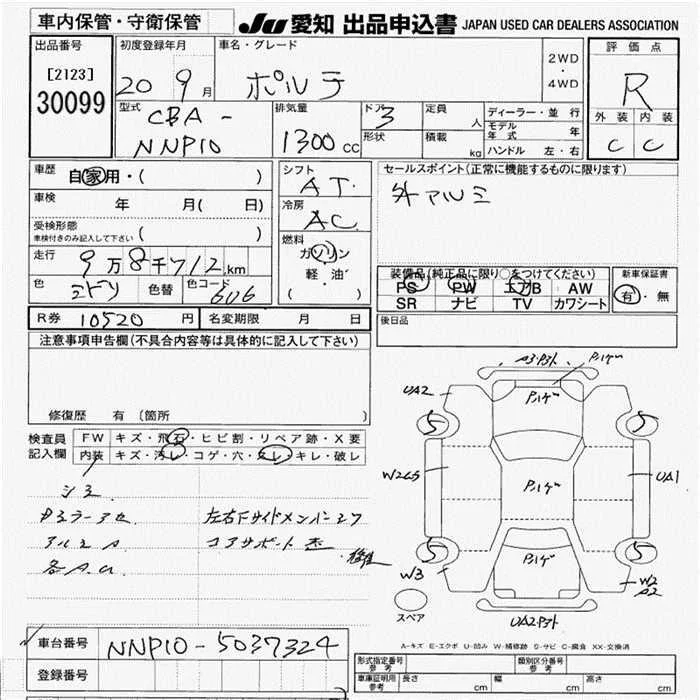 車内保管・守衛保管
JU 愛知 出品申込書 JAPAN USED CAR DEALERS ASSOCIATION
出品番号
[2123]
30099
初度登録年月
20 9月
車名・グレード
ポルテ
2WD
・
4WD
評価点
R
外装 内装
C C
型式
CBA-
NNP10
排気量
1300cc
ドア
3
形状
定員
人
積載
kg
ディーラー・並行
モデル
年式 年
ハンドル 左・右
車歴
自家用・( )
車検
年 月( 日)
受検形態
車検付きのみ記入して下さい ( )
走行
9万8千712km
色
ミドリ
色替
色コード
6U6
シフト
AT
冷房
AC
燃料
ガソリン
軽・油
( )
セールスポイント(正常に機能するものに限ります)
外アルミ
装備品(純正品に限り○をつけてください)
PS PW エアB AW
SR ナビ TV カワシート
新車保証書
有・無
後日品
R券 10520円
名変期限 月 日
注意事項申告欄(不具合内容等は具体的に記入して下さい)
修復歴 有(箇所 )
検査員
記入欄
FW キズ・飛石・ヒビ割・リペア跡・X要
内装 キズ・汚レ・コゲ・穴・スレ・キレ・破レ
シミ
アルミA
左右下サイドメンバーミワ
コアサポート
修雑
UA2
5
5
W2
UA1
5
5
W3
W2
A2
スペア
A-キズ E-エクボ U-凹み W-補修跡 S-サビ C-腐食 XX-交換済
車台番号 NNP10-5037324
登録番号
形式指定番号
参考
類別区分番号
参考
車庫証明用
参考
長さ cm 幅 cm 高さ cm